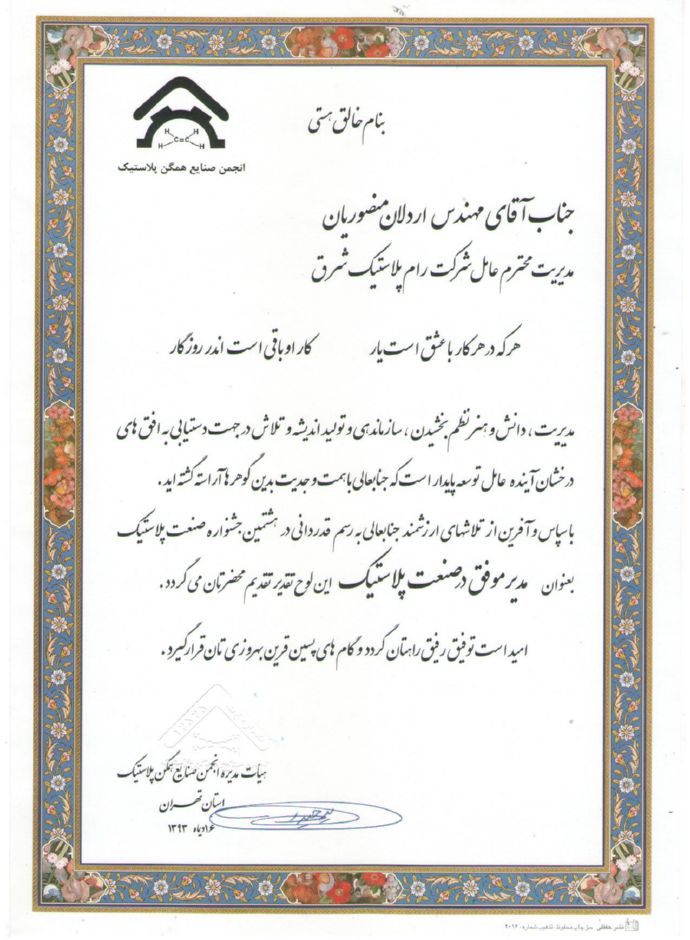 بنام خالق هستی
H H
C=C
H H
انجمن صنایع همگن پلاستیک
جناب آقای مهندس اردلان منصوریان
مدیریت محترم عامل شرکت رام پلاستیک شرق
هر که در هر کار با عشق است یار کار او باقی است اندر روزگار
مدیریت، دانش و هنر نظم بخشیدن، سازماندهی و تولید اندیشه و تلاش در جهت دستیابی به افق های
درخشان آینده عامل توسعه پایدار است که جنابعالی با همت و جدیت بدین گوهرها آراسته گشته اید.
با سپاس و آفرین از تلاشهای ارزشمند جنابعالی به رسم قدردانی در هشتمین جشنواره صنعت پلاستیک
بعنوان مدیر موفق در صنعت پلاستیک این لوح تقدیر تقدیم محضرتان می گردد.
امید است توفیق رفیق راهتان گردد و گام های پسین قرین بهروزی تان قرار گیرد.
هیات مدیره انجمن صنایع همگن پلاستیک
استان تهران
۱۶ دیماه ۱۳۹۳
حق چاپ محفوظ. تذهیب شماره: ۲۰۱۶